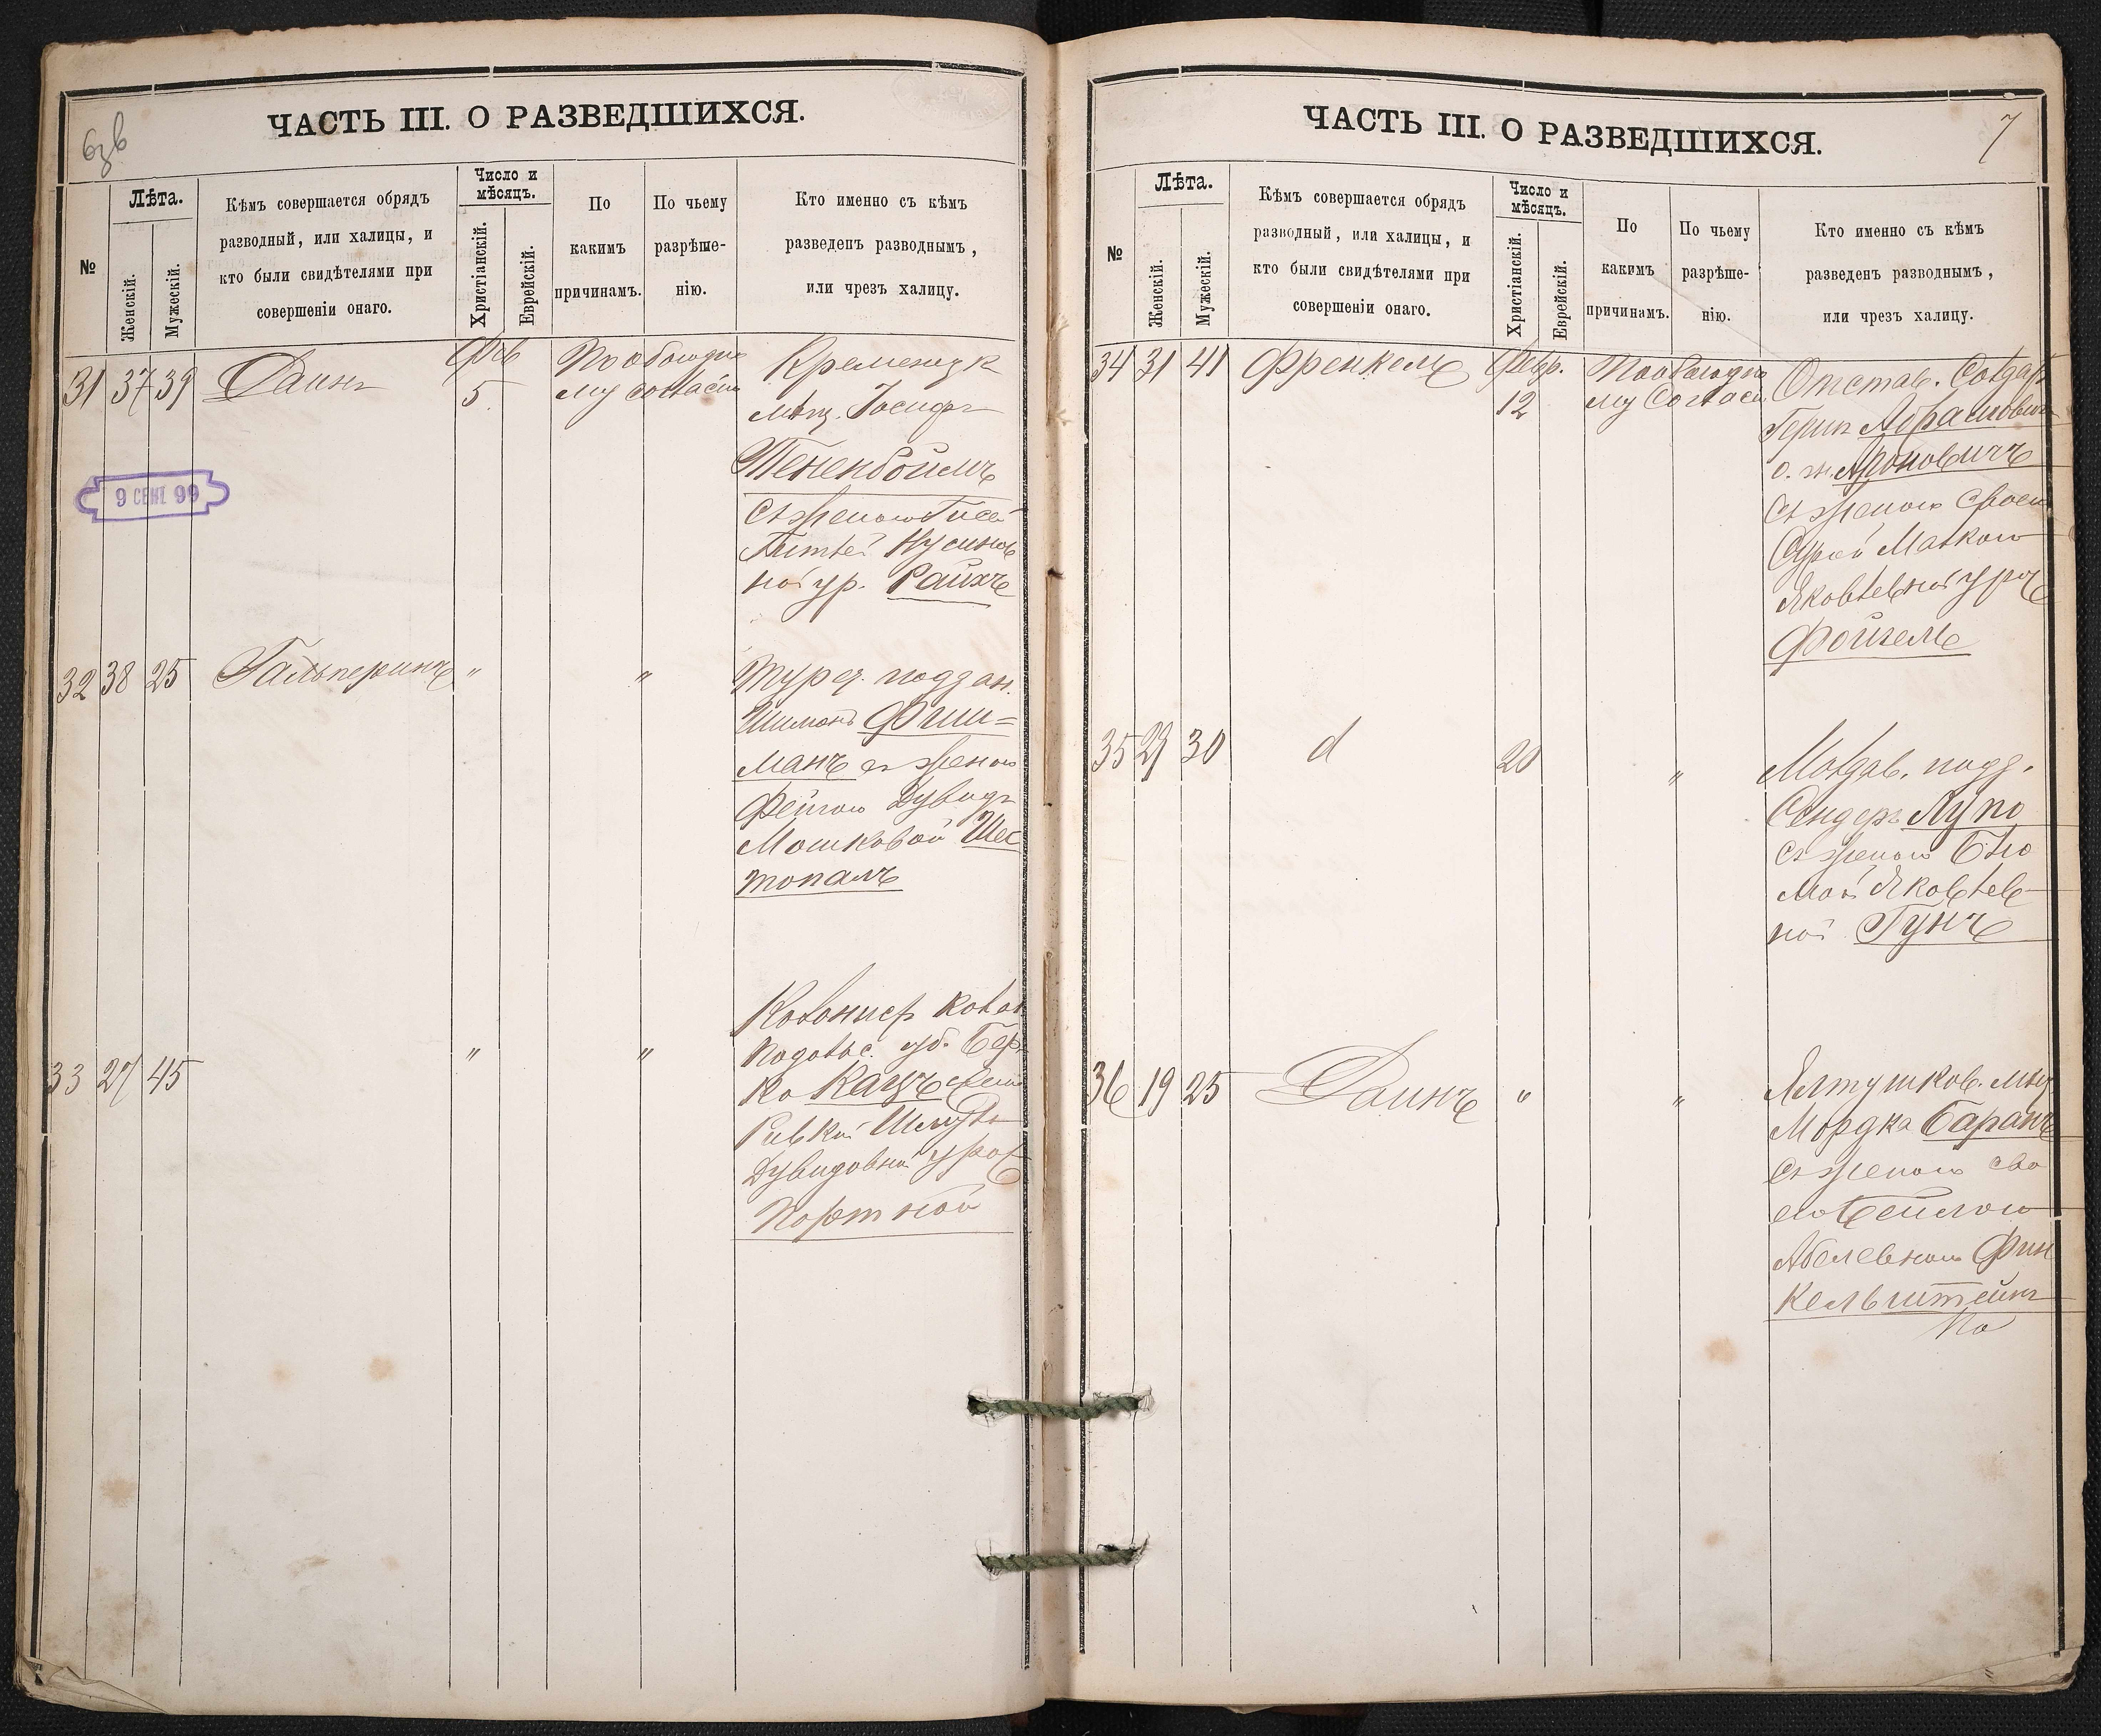 бзв
ЧАСТЬ III. О РАЗВЕДШИХСЯ.
№
Лѣта.
Женскій.
Мужескій.
Кѣмъ совершается обрядъ
разводный, или халицы, и
кто были свидѣтелями при
совершеніи онаго.
Число и
мѣсяцъ.
Христіанскій.
Еврейскій.
По
какимъ
причинамъ.
По чьему
разрѣше-
нію.
Кто именно съ кѣмъ
разведенъ разводнымъ,
или чрезъ халицу.
31 37 39 Даинъ
Фев
5
По обоюдно
му согласію
Кременецк
мѣщ. Іосифъ
Тененбоймъ
съ женою
Нусинов
ной ур. Райхъ
9 СЕНТ 99
32 38 25 Гальперинъ " "
Турец. поддан.
Шимонъ Фиш=
манъ съ женою
Фейгою Дувидъ
Мошковой Шес
топалъ
33 27 45 " "
Колонист колон
Подольс. губ. Бер
ко Кацъ с жен
Ривкой
Дувидовной урож
Портной
7
ЧАСТЬ III. О РАЗВЕДШИХСЯ.
№
Лѣта.
Женскій.
Мужескій.
Кѣмъ совершается обрядъ
разводный, или халицы, и
кто были свидѣтелями при
совершеніи онаго.
Число и
мѣсяцъ.
Христіанскій.
Еврейскій.
По
какимъ
причинамъ.
По чьему
разрѣше-
нію.
Кто именно съ кѣмъ
разведенъ разводнымъ,
или чрезъ халицу.
34 31 41 Френкель
Февр.
12
По обоюдно
му Согласі
Отстав. Солдатъ
Герш Абрамович
о. ж. Ароновичъ
съ женою своею
Сурой Малкою
Яковлевной урож
Фойгель
35 29 30 d 20 "
Молдав. подд.
Сендеръ Лупо
съ женою Блю
мой Яковлев
ной Гунъ
36 19 25 Даинъ " "
Ялтушков. мѣщ
Мордка Баранъ
съ женою сво
ею Бейлою
Абелевною Фин
кельштейнъ
По